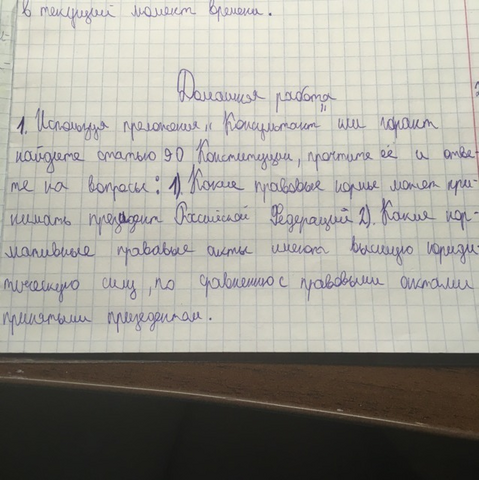 в текущий момент времени.
Домашняя работа
1. Используя преложения „Консультант" или гарант
найдите статью 90 Конституции, прочтите её и отве-
те на вопросы: 1). Какие правовые нормы может при-
нимать президент Российской Федераций 2). Какие нор-
мативные прававые акты имеют высшую юриди-
тическую силу, по сравнению с правовыми актами
принятыми презедентом.